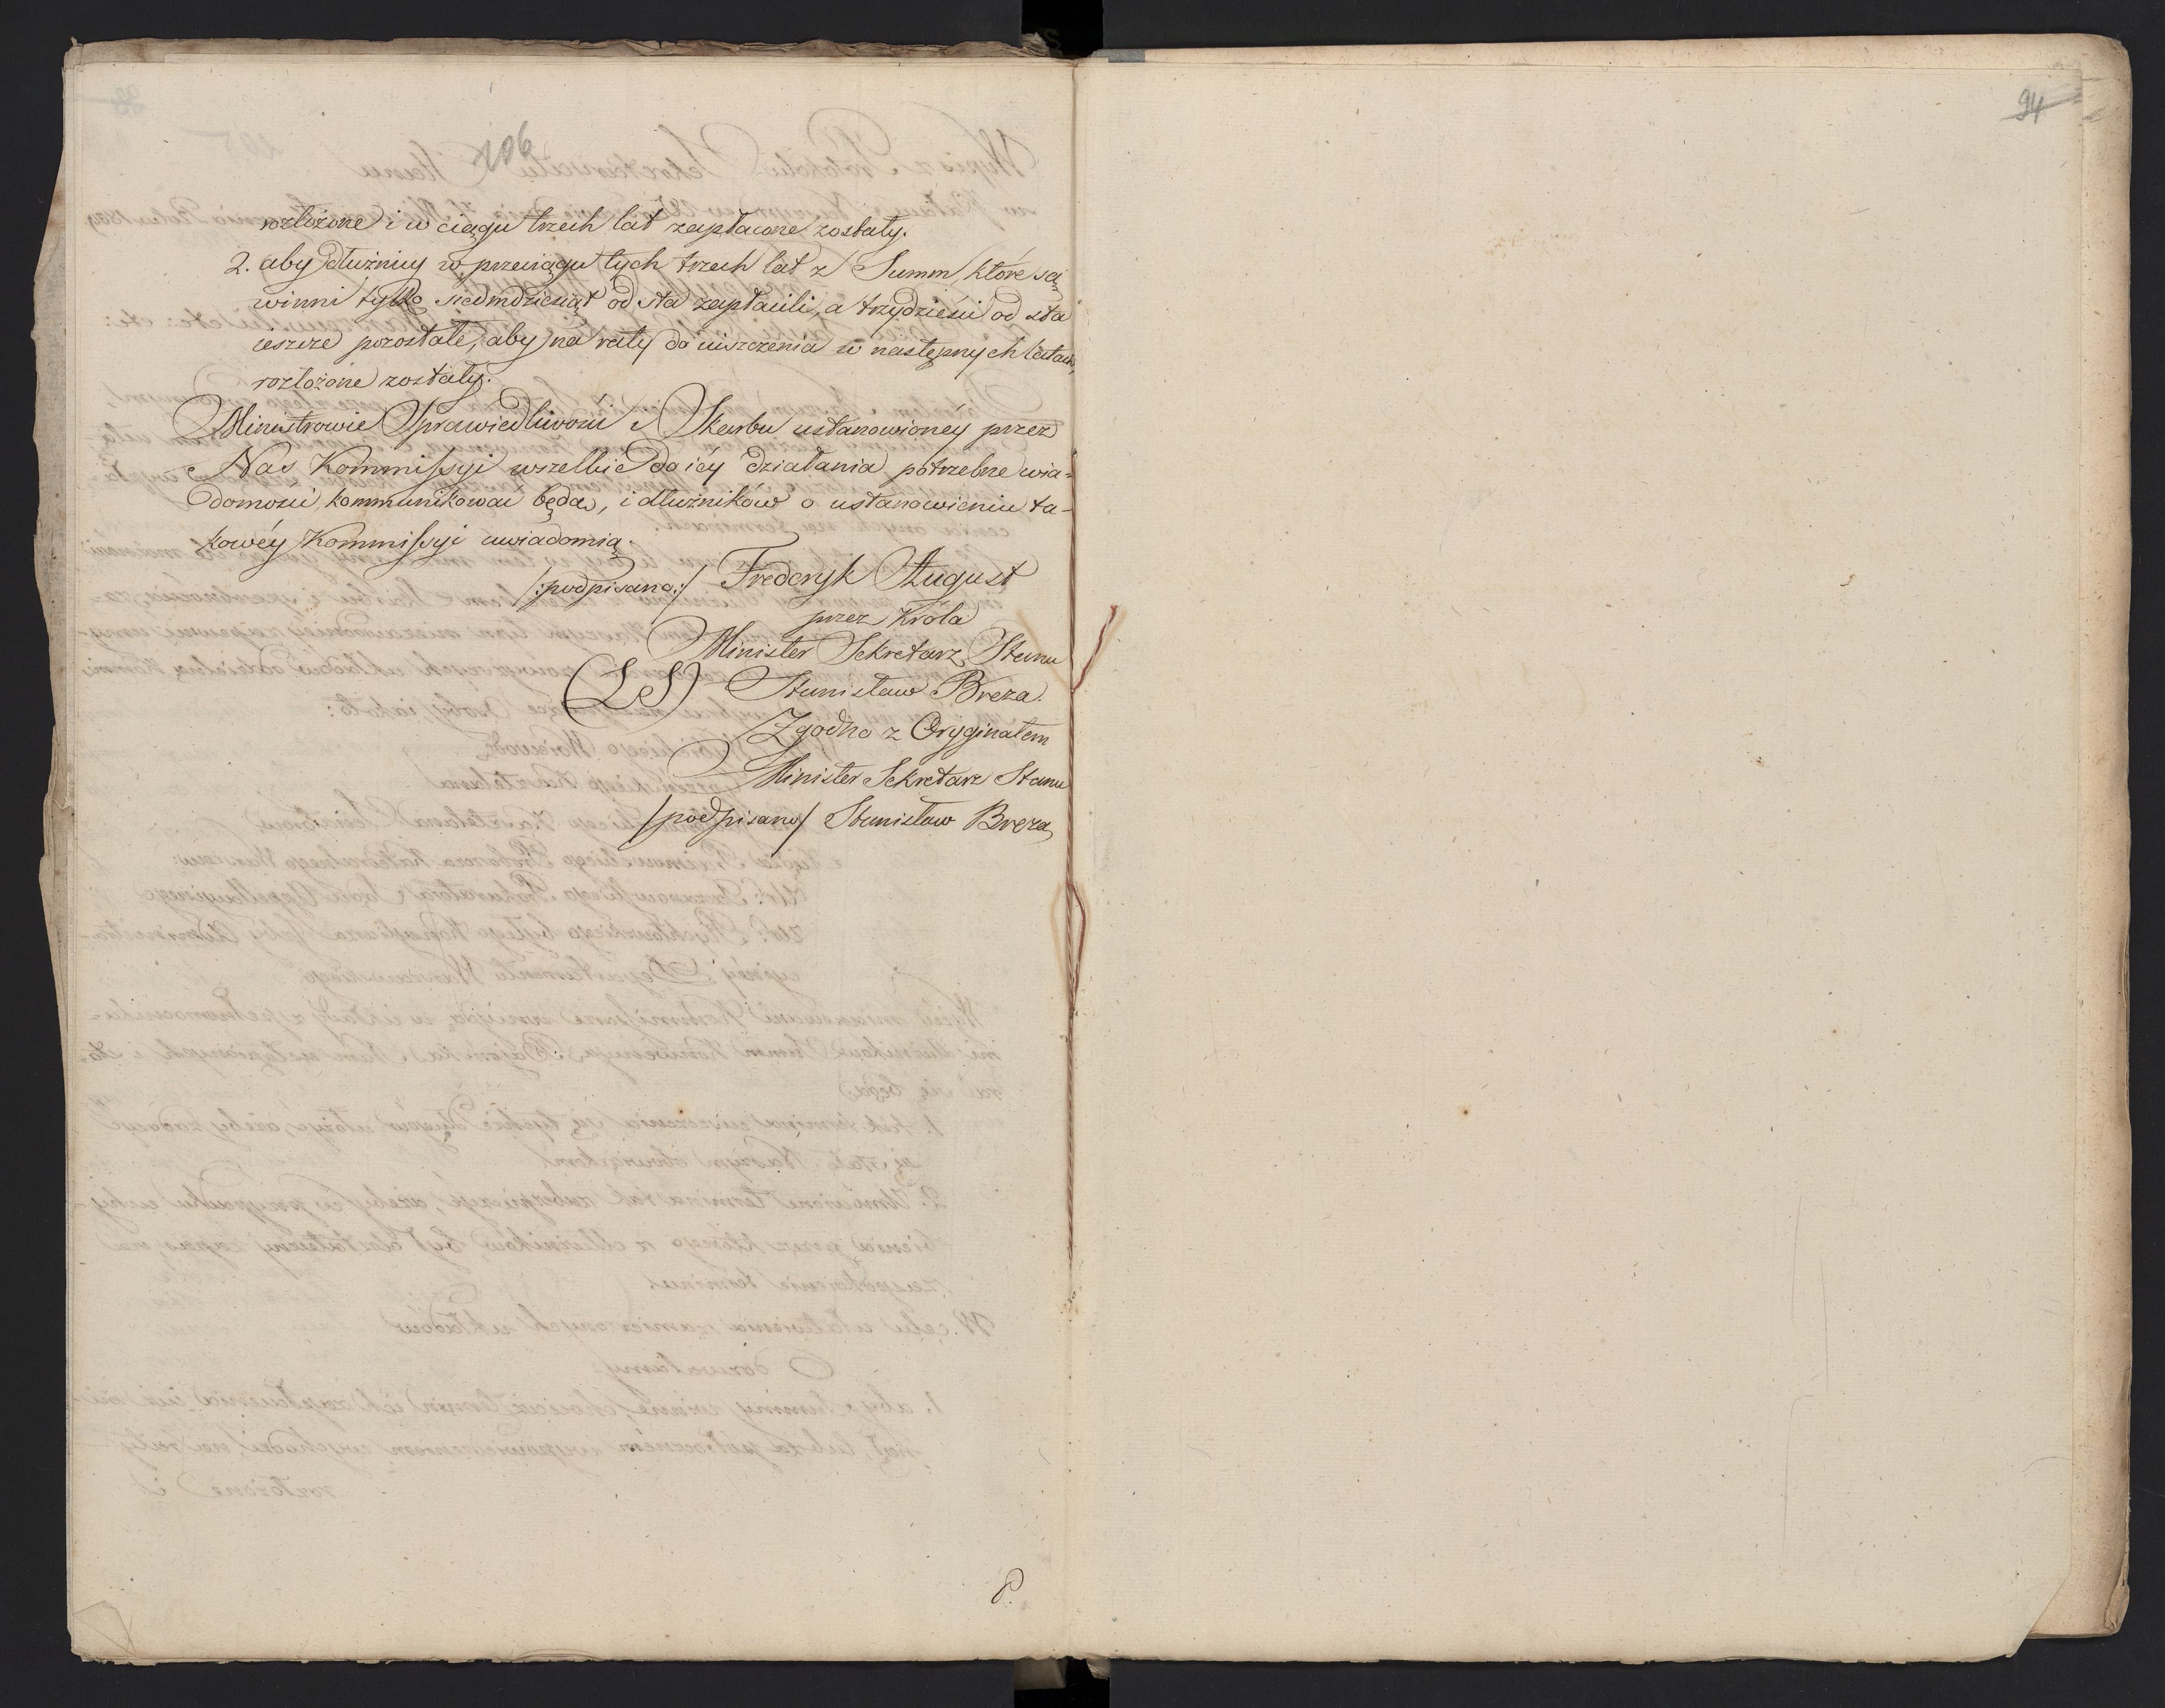 106
rozłożone i w ciągu trzech lat zapłacone zostały.
2. aby dłużnicy w przeciągu tych trzech lat z Summ, które są
winni tylko siedmdziesiąt od sta zapłacili, a trzydzieści od sta
ieszcze pozostałe, aby na raty do uiszczenia w następnych latach,
rozłożone zostały.
Ministrowie Sprawiedliwości i Skarbu ustanowionéy przez
Nas Kommissyi wszelkie do iéy działania potrzebne wia-
domości, kommunikować będą, i dłużników o ustanowieniu ta-
kowéy Kommissyi uwiadomią.
/:podpisano:/ Frederyk August
przez Króla
Minister Sekretarz Stanu
(LS) Stanisław Breza.
Zgodno z Oryginałem
Minister Sekretarz Stanu
/podpisano/ Stanisław Breza
8.
94